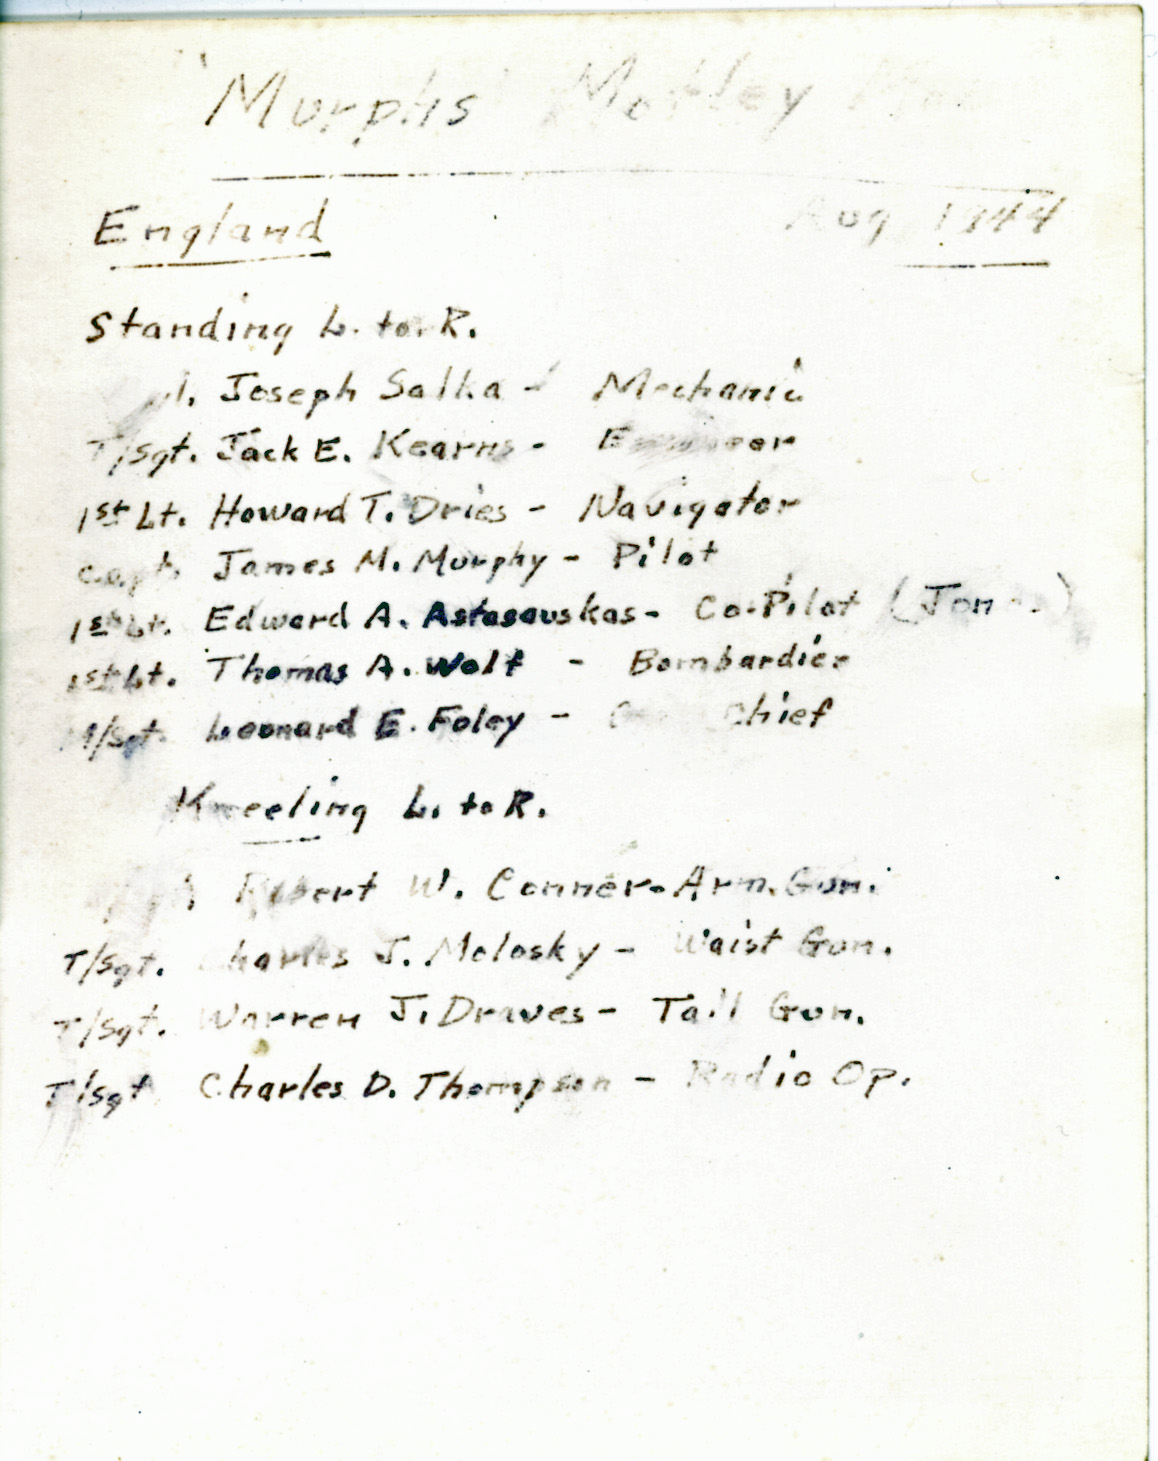 "Murphs' Motley
England Aug 1944
Standing L. to R.
Joseph Salka - Mechanic
T/Sgt. Jack E. Kearns - Engineer
1st Lt. Howard T. Dries - Navigator
Capt. James M. Murphy - Pilot
1st Lt. Edward A. Astasauskas - Co-Pilot
1st Lt. Thomas A. Wolf - Bombardier
M/Sgt. Leonard E. Foley - Chief
Kneeling L. to R.
Robert W. Conner - Arm. Gun.
T/Sgt. Charles J. Molosky - Waist Gun.
T/Sgt. Warren J. Draves - Tail Gun.
T/Sgt. Charles D. Thompson - Radio Op.